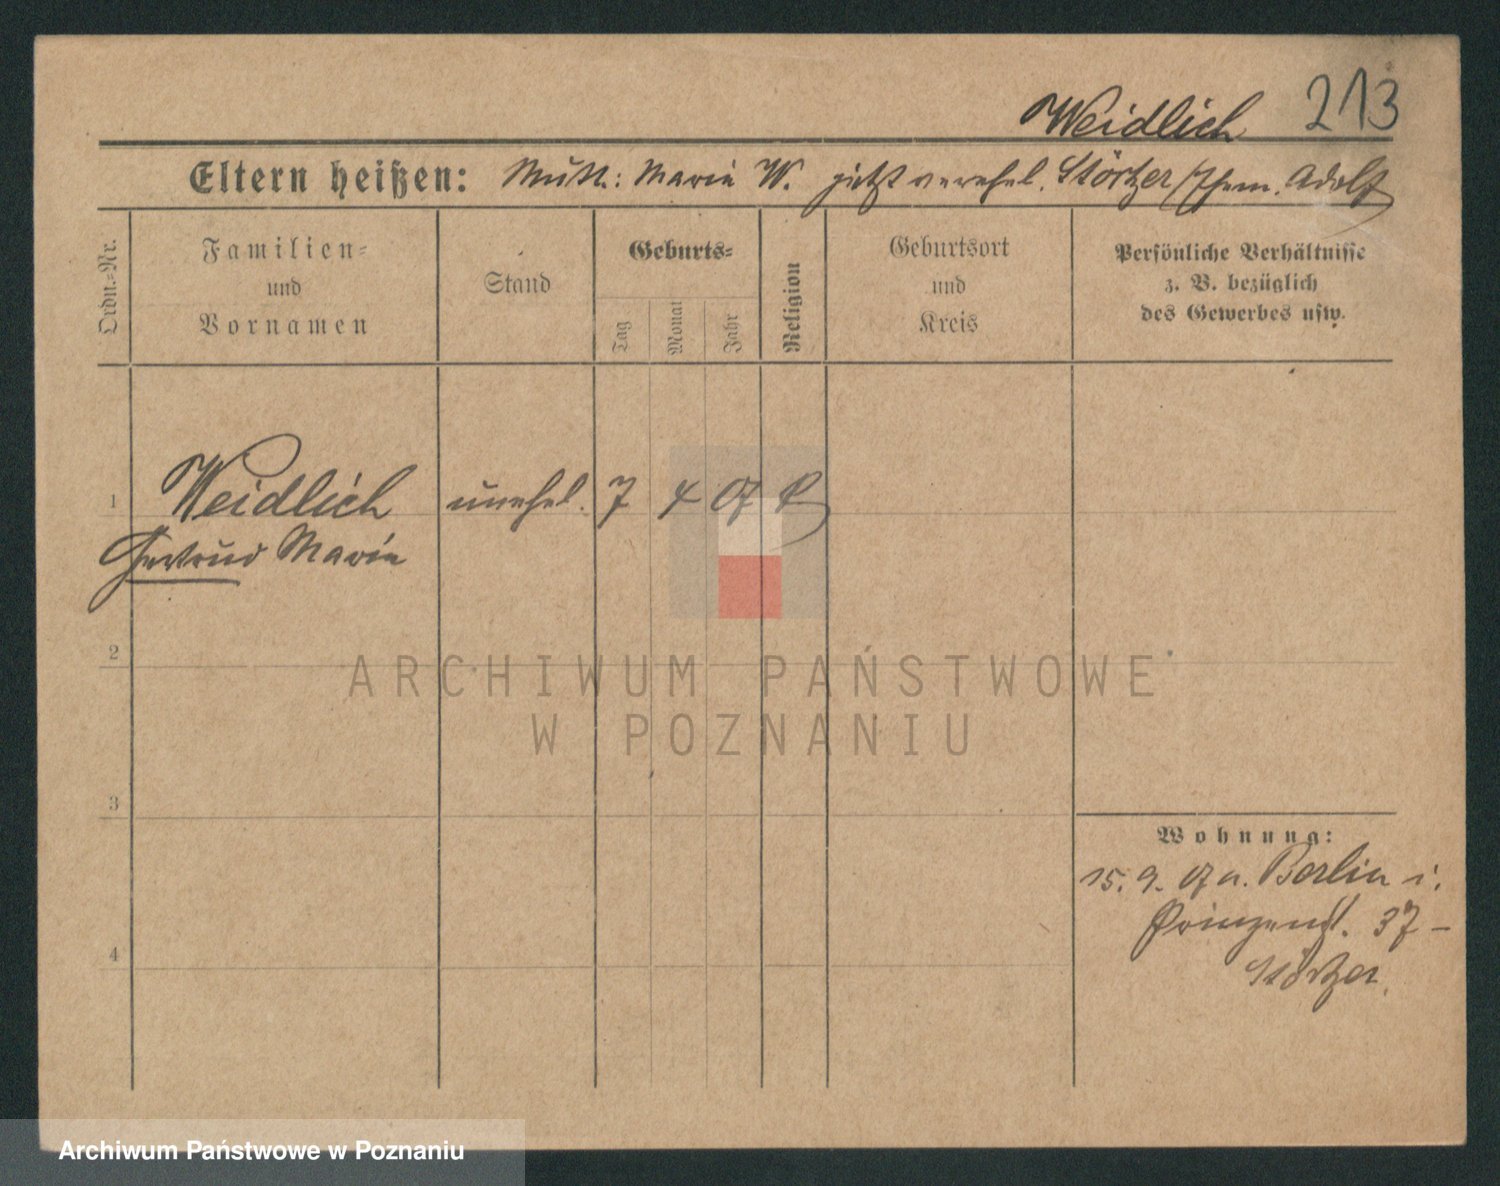 Weidlich 213
Eltern heißen: Mutt.: Marie W. jetzt verehel. Störtzer / Adolf
Ordn.=Nr.
Familien=
und
Vornamen
Stand
Geburts=
Tag
Monat
Jahr
Religion
Geburtsort
und
Kreis
Persönliche Verhältnisse
z. B. bezüglich
des Gewerbes usw.
1 Weidlich unehel. 7 4 07
Gertrud Marie
2
ARCHIWUM PAŃSTWOWE
W POZNANIU
3
Wohnung:
15. 9. 07 n. Berlin i.
Prinzenst. 37 –
4
Störtzer.
Archiwum Państwowe w Poznaniu